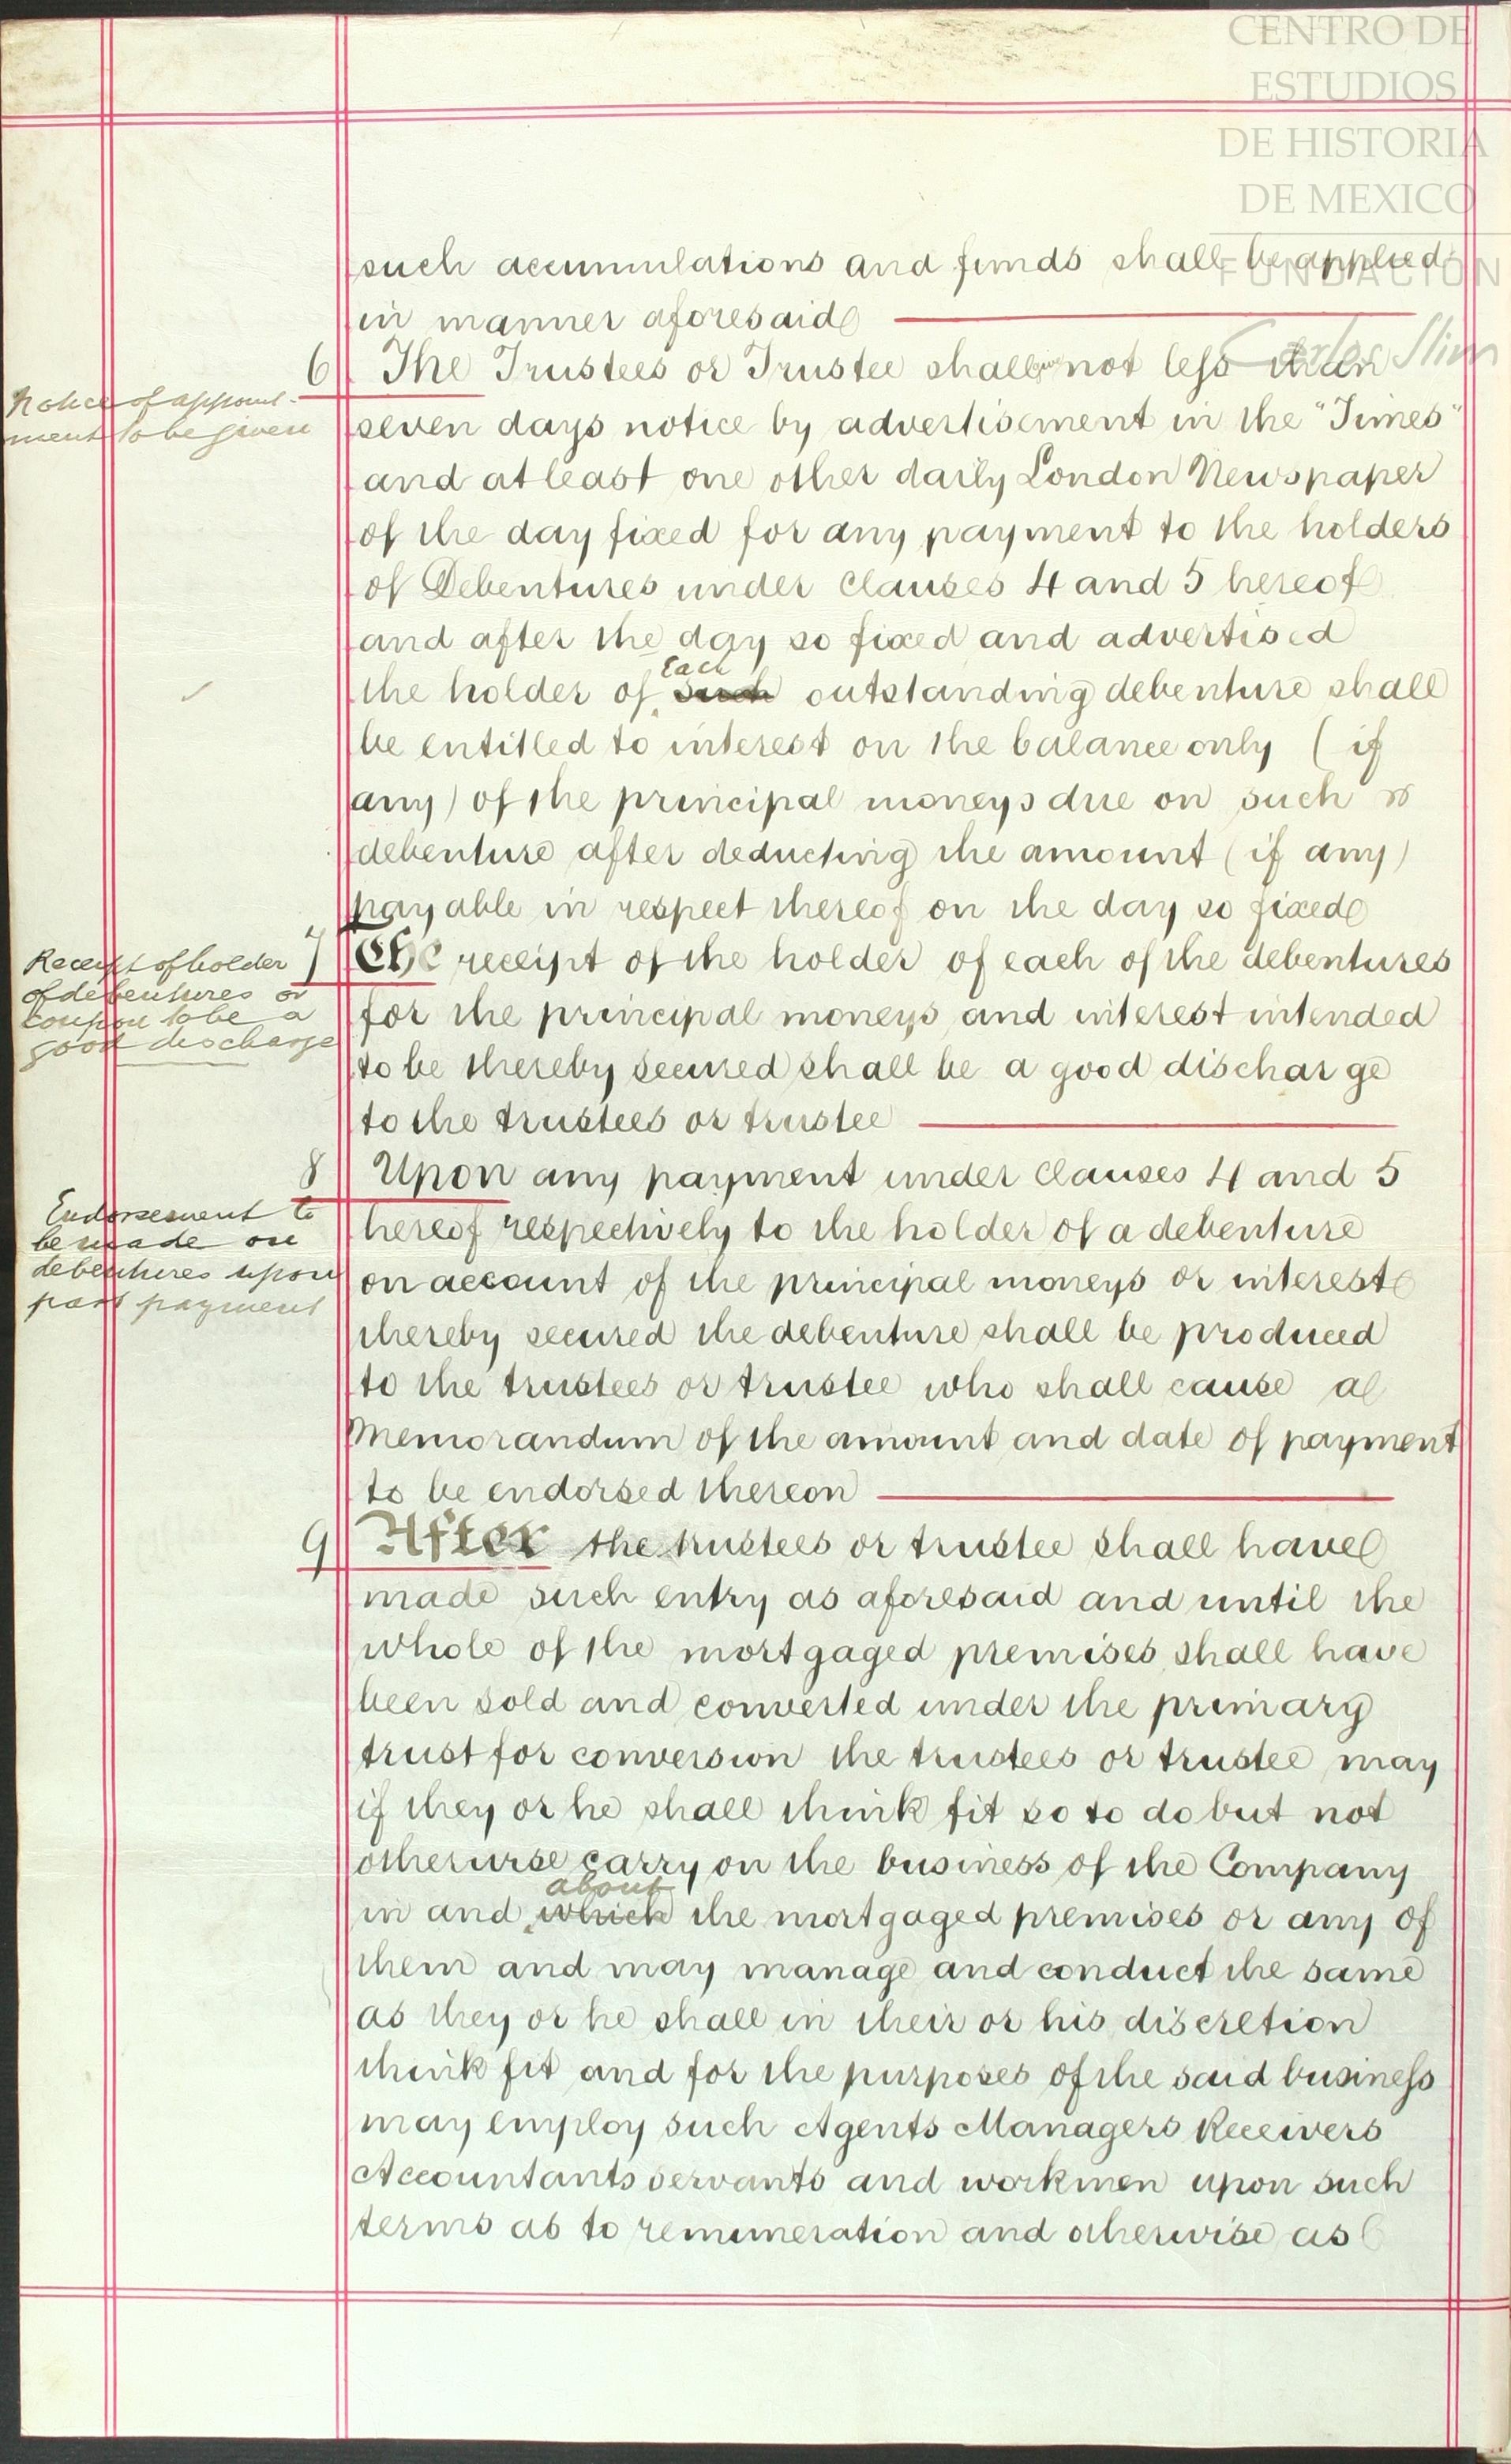 CENTRO DE
ESTUDIOS
DE HISTORIA
DE MEXICO
FUNDACIÓN
Carlos Slim
such accumulations and funds shall be applied
in manner aforesaid
6 The Trustees or Trustee shall give not less than
Notice of appoint-
ment to be given
seven days notice by advertisement in the "Times"
and at least one other daily London Newspaper
of the day fixed for any payment to the holders
of Debentures under clauses 4 and 5 hereof
and after the day so fixed and advertised
Each
the holder of such outstanding debenture shall
be entitled to interest on the balance only (if
any) of the principal moneys due on such
debenture after deducting the amount (if any)
payable in respect thereof on the day so fixed
7 The receipt of the holder of each of the debentures
Receipt of holder
of debentures or
coupon to be a
good discharge
for the principal moneys and interest intended
to be thereby secured shall be a good discharge
to the trustees or trustee
8 Upon any payment under clauses 4 and 5
Endorsement to
be made on
debentures upon
part payment
hereof respectively to the holder of a debenture
on account of the principal moneys or interest
thereby secured the debenture shall be produced
to the trustees or trustee who shall cause a
Memorandum of the amount and date of payment
to be endorsed thereon
9 After the trustees or trustee shall have
made such entry as aforesaid and until the
whole of the mortgaged premises shall have
been sold and converted under the primary
trust for conversion the trustees or trustee may
if they or he shall think fit so to do but not
otherwise carry on the business of the Company
about
in and which the mortgaged premises or any of
them and may manage and conduct the same
as they or he shall in their or his discretion
think fit and for the purposes of the said business
may employ such Agents Managers Receivers
Accountants servants and workmen upon such
terms as to remuneration and otherwise as